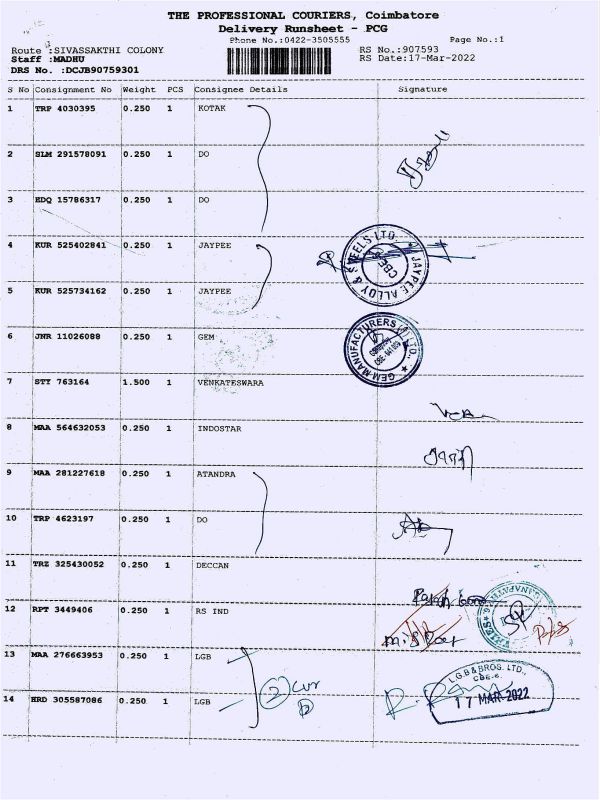 THE PROFESSIONAL COURIERS, Coimbatore
Delivery Runsheet - PCG
Phone No.:0422-3505555 Page No.:1
Route :SIVASSAKTHI COLONY RS No.:907593
Staff :MADHU RS Date:17-Mar-2022
DRS No. :DCJB90759301
S No Consignment No Weight PCS Consignee Details Signature
1 TRP 4030395 0.250 1 KOTAK
2 SLM 291578091 0.250 1 DO
3 EDQ 15786317 0.250 1 DO
4 KUR 525402841 0.250 1 JAYPEE
JAYPEE ALLOY & STEELS LTD. CBE
5 KUR 525734162 0.250 1 JAYPEE
6 JNR 11026088 0.250 1 GEM
GEM MANUFACTURERS
7 STY 763164 1.500 1 VENKATESWARA
8 MAA 564632053 0.250 1 INDOSTAR
9 MAA 281227618 0.250 1 ATANDRA
10 TRP 4623197 0.250 1 DO
11 TRZ 325430052 0.250 1 DECCAN
12 RPT 3449406 0.250 1 RS IND
13 MAA 276663953 0.250 1 LGB
L.G.B & BROS. LTD.,
CBE-6.
17 MAR 2022
14 HRD 305587086 0.250 1 LGB